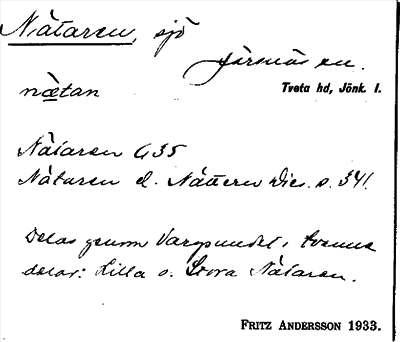 Nätaren, sjö
Järsnäs sn.
Tveta hd, Jönk. l.
nætan
Nätaren G35
Nätaren el. Nättern Wies. s. 341.
Delas genom Vargsundet i tvenne
delar: Lilla o. Stora Nätaren.
FRITZ ANDERSSON 1933.